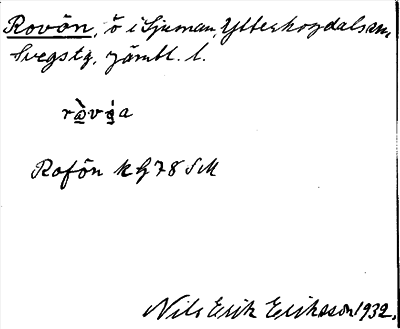 Rovön, ö i Ljusnan, Ytterhogdals sn,
Svegs tg, Jämtl. l.
Rofön KG 78 SM
Nils Erik Eriksson 1932.